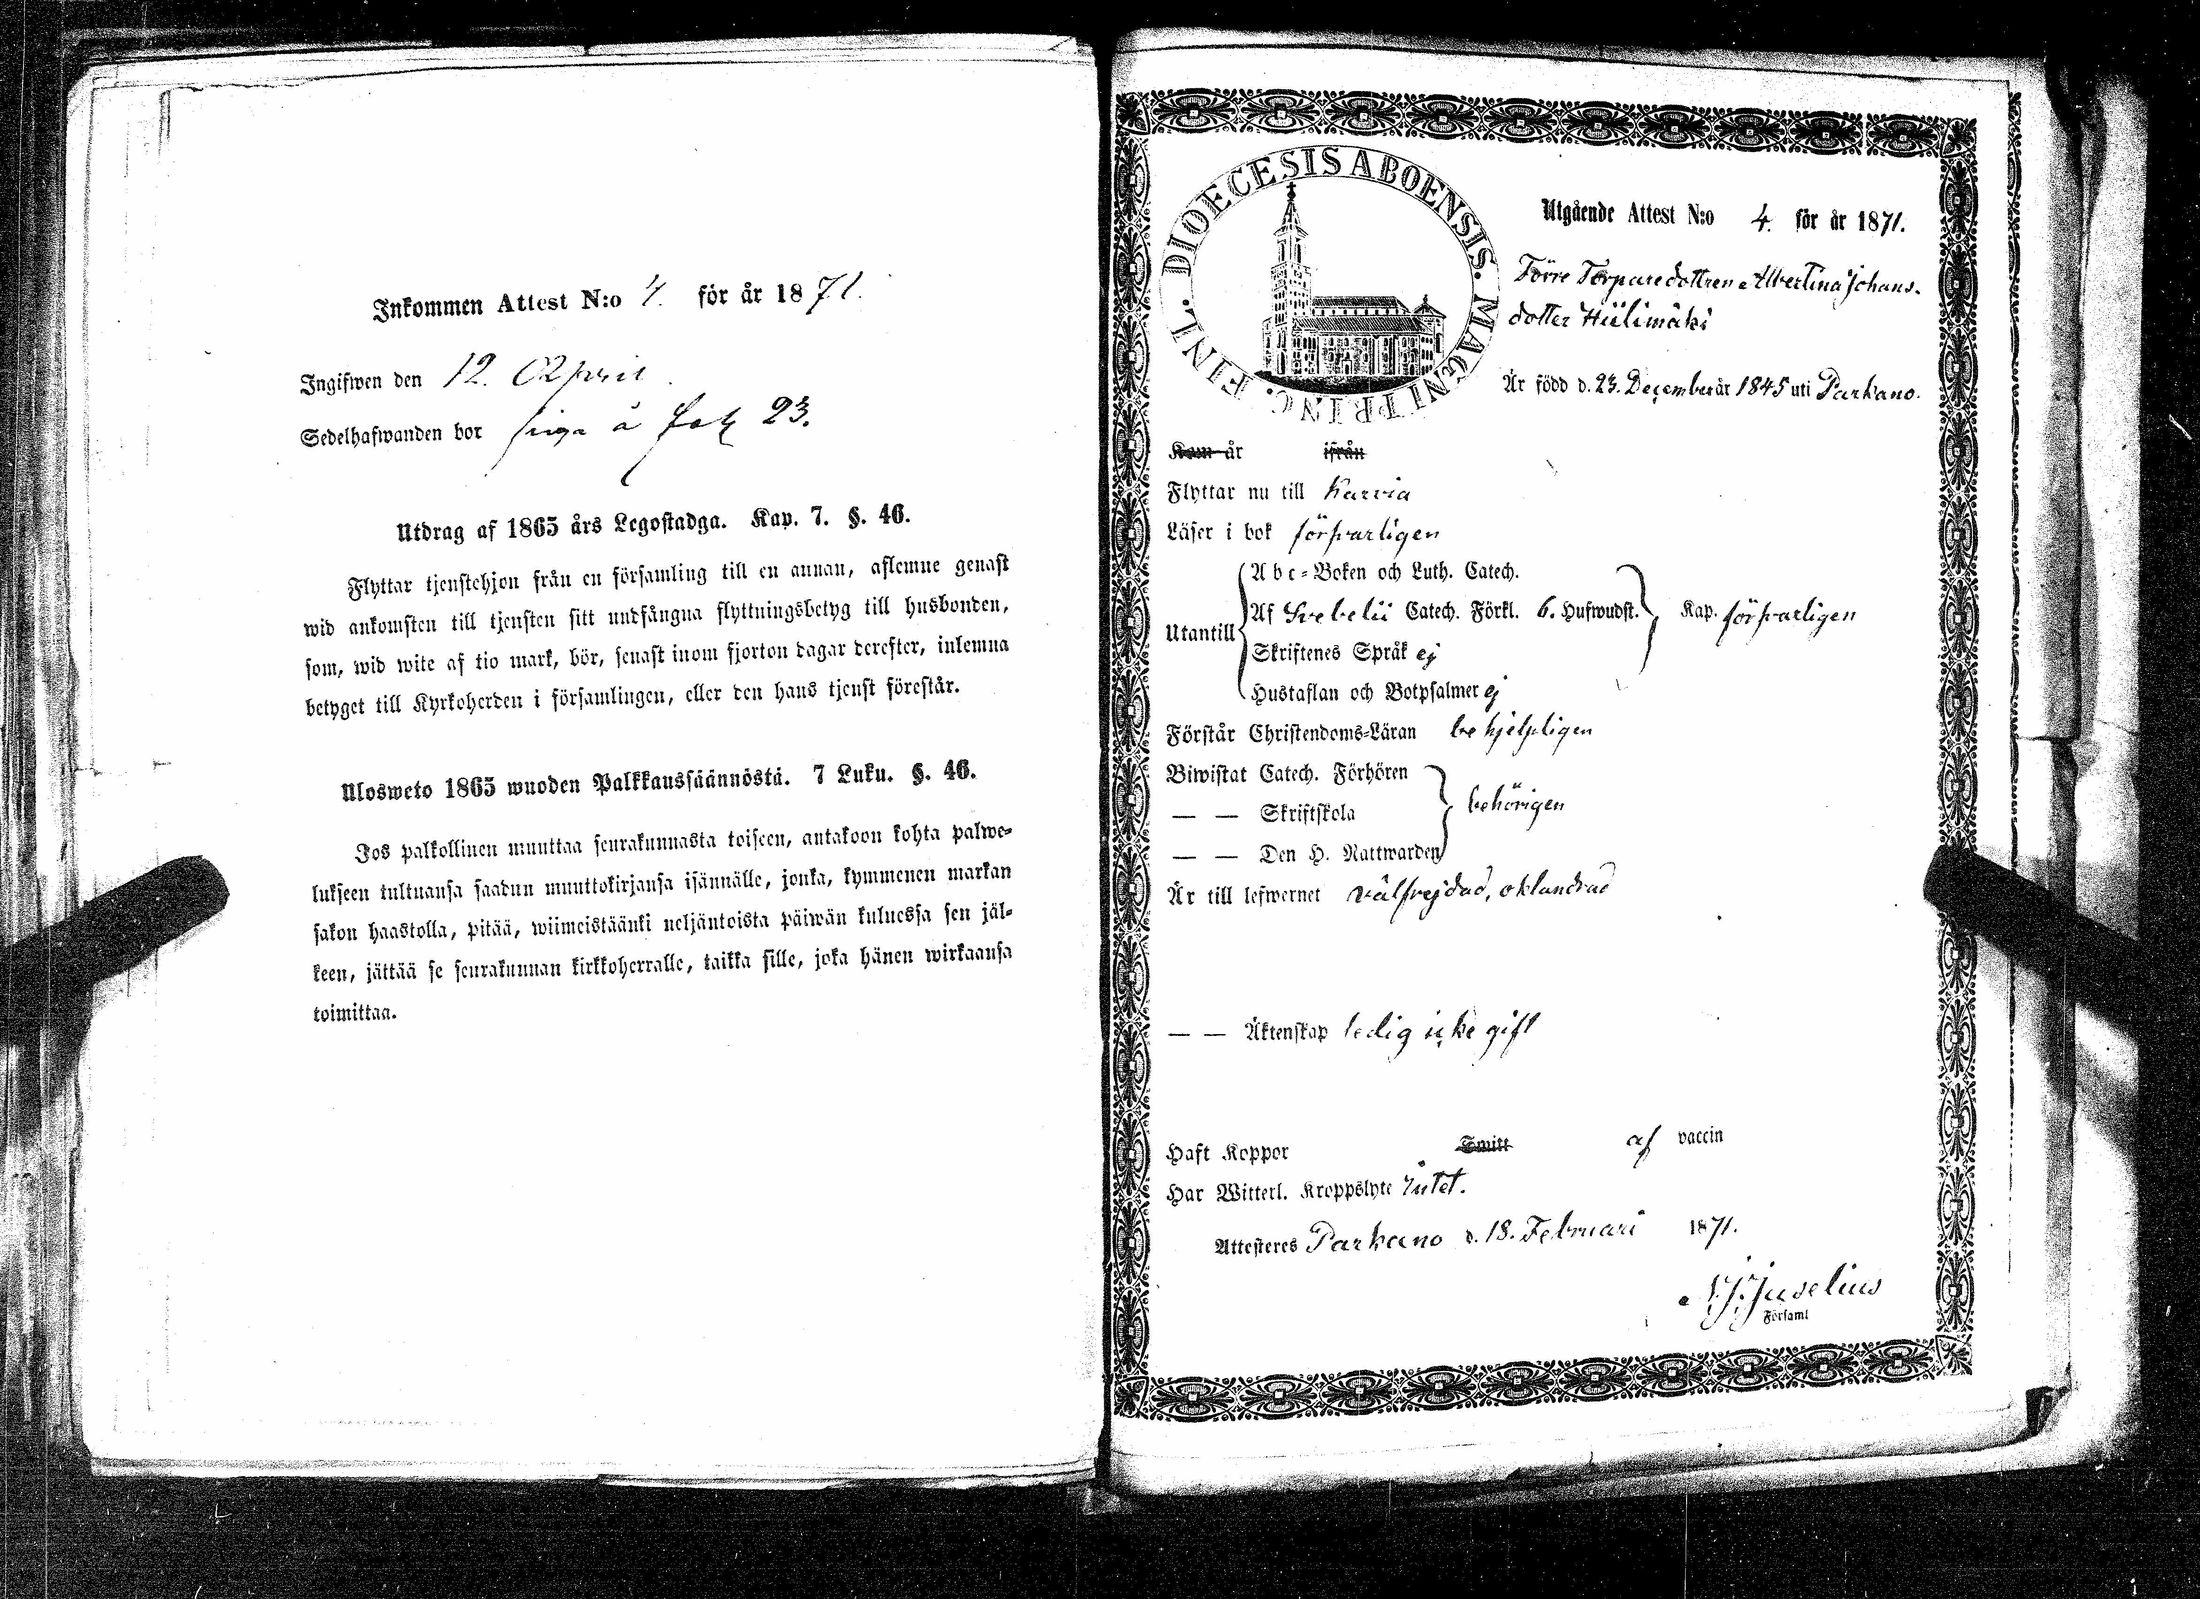 Inkommen Attest N:o 4. för år 1871.
Ingifwen den 12. April.
Sedelhafwanden bor å 23.
Utdrag af 1865 års Legostadga. Kap. 7. §. 46.
Flyttar tjenstehjon från en församling till en annan, aflemne genast
wid ankomsten till tjensten sitt undfångna flyttningsbetyg till husbonden,
som, wid wite af tio mark, bör, senast inom fjorton dagar derefter, inlemna
betyget till Kyrkoherden i församlingen, eller den hans tjenst förestår.
Ulosweto 1865 wuoden Palkkaussäännöstä. 7 Luku. §. 46.
Jos palkollinen muuttaa seurakunnasta toiseen, antakoon kohta palwe-
lukseen tultuansa saadun muuttokirjansa isännälle, jonka, kymmenen markan
sakon haastolla, pitää, wiimeistäänki neljäntoista päiwän kuluessa sen jäl-
keen, jättää se seurakunnan kirkkoherralle, taikka sille, joka hänen wirkaansa
toimittaa.
DIOECESIS ABOENSIS. MAGNI PRINC. FINL.
Utgående Attest N:o 4. för år 1871.
Förre Torparedottren Albertina Johans-
dotter Hiilimäki
Är född d. 23. December år 1845 uti Parkano.
Kom år ifrån
Flyttar nu till Karvia
Läser i bok försvarligen
Utantill
Abc-Boken och Luth. Catech.
Af Svebelii Catech. Förkl. 6. Hufwudst. Kap. försvarligen
Skriftenes Språk ej
Hustaflan och Botpsalmer ej
Förstår Christendoms-Läran behjelpligen
Biwistat Catech. Förhören
— — Skriftskola behörigen
— — Den H. Nattwarden
Är till lefwernet välfrejdad, oklandrad
— — Äktenskap ledig icke gift
Haft Koppor Smitt af vaccin
Har Witterl. Kroppslyte intet.
Attesteres Parkano d. 18. Februari 1871.
N. J. Juselius
Församl